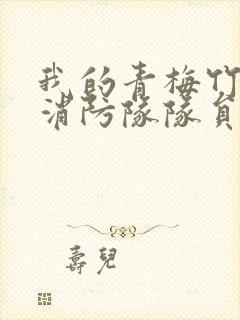 我的青梅竹
消防隊隊員
壽兒